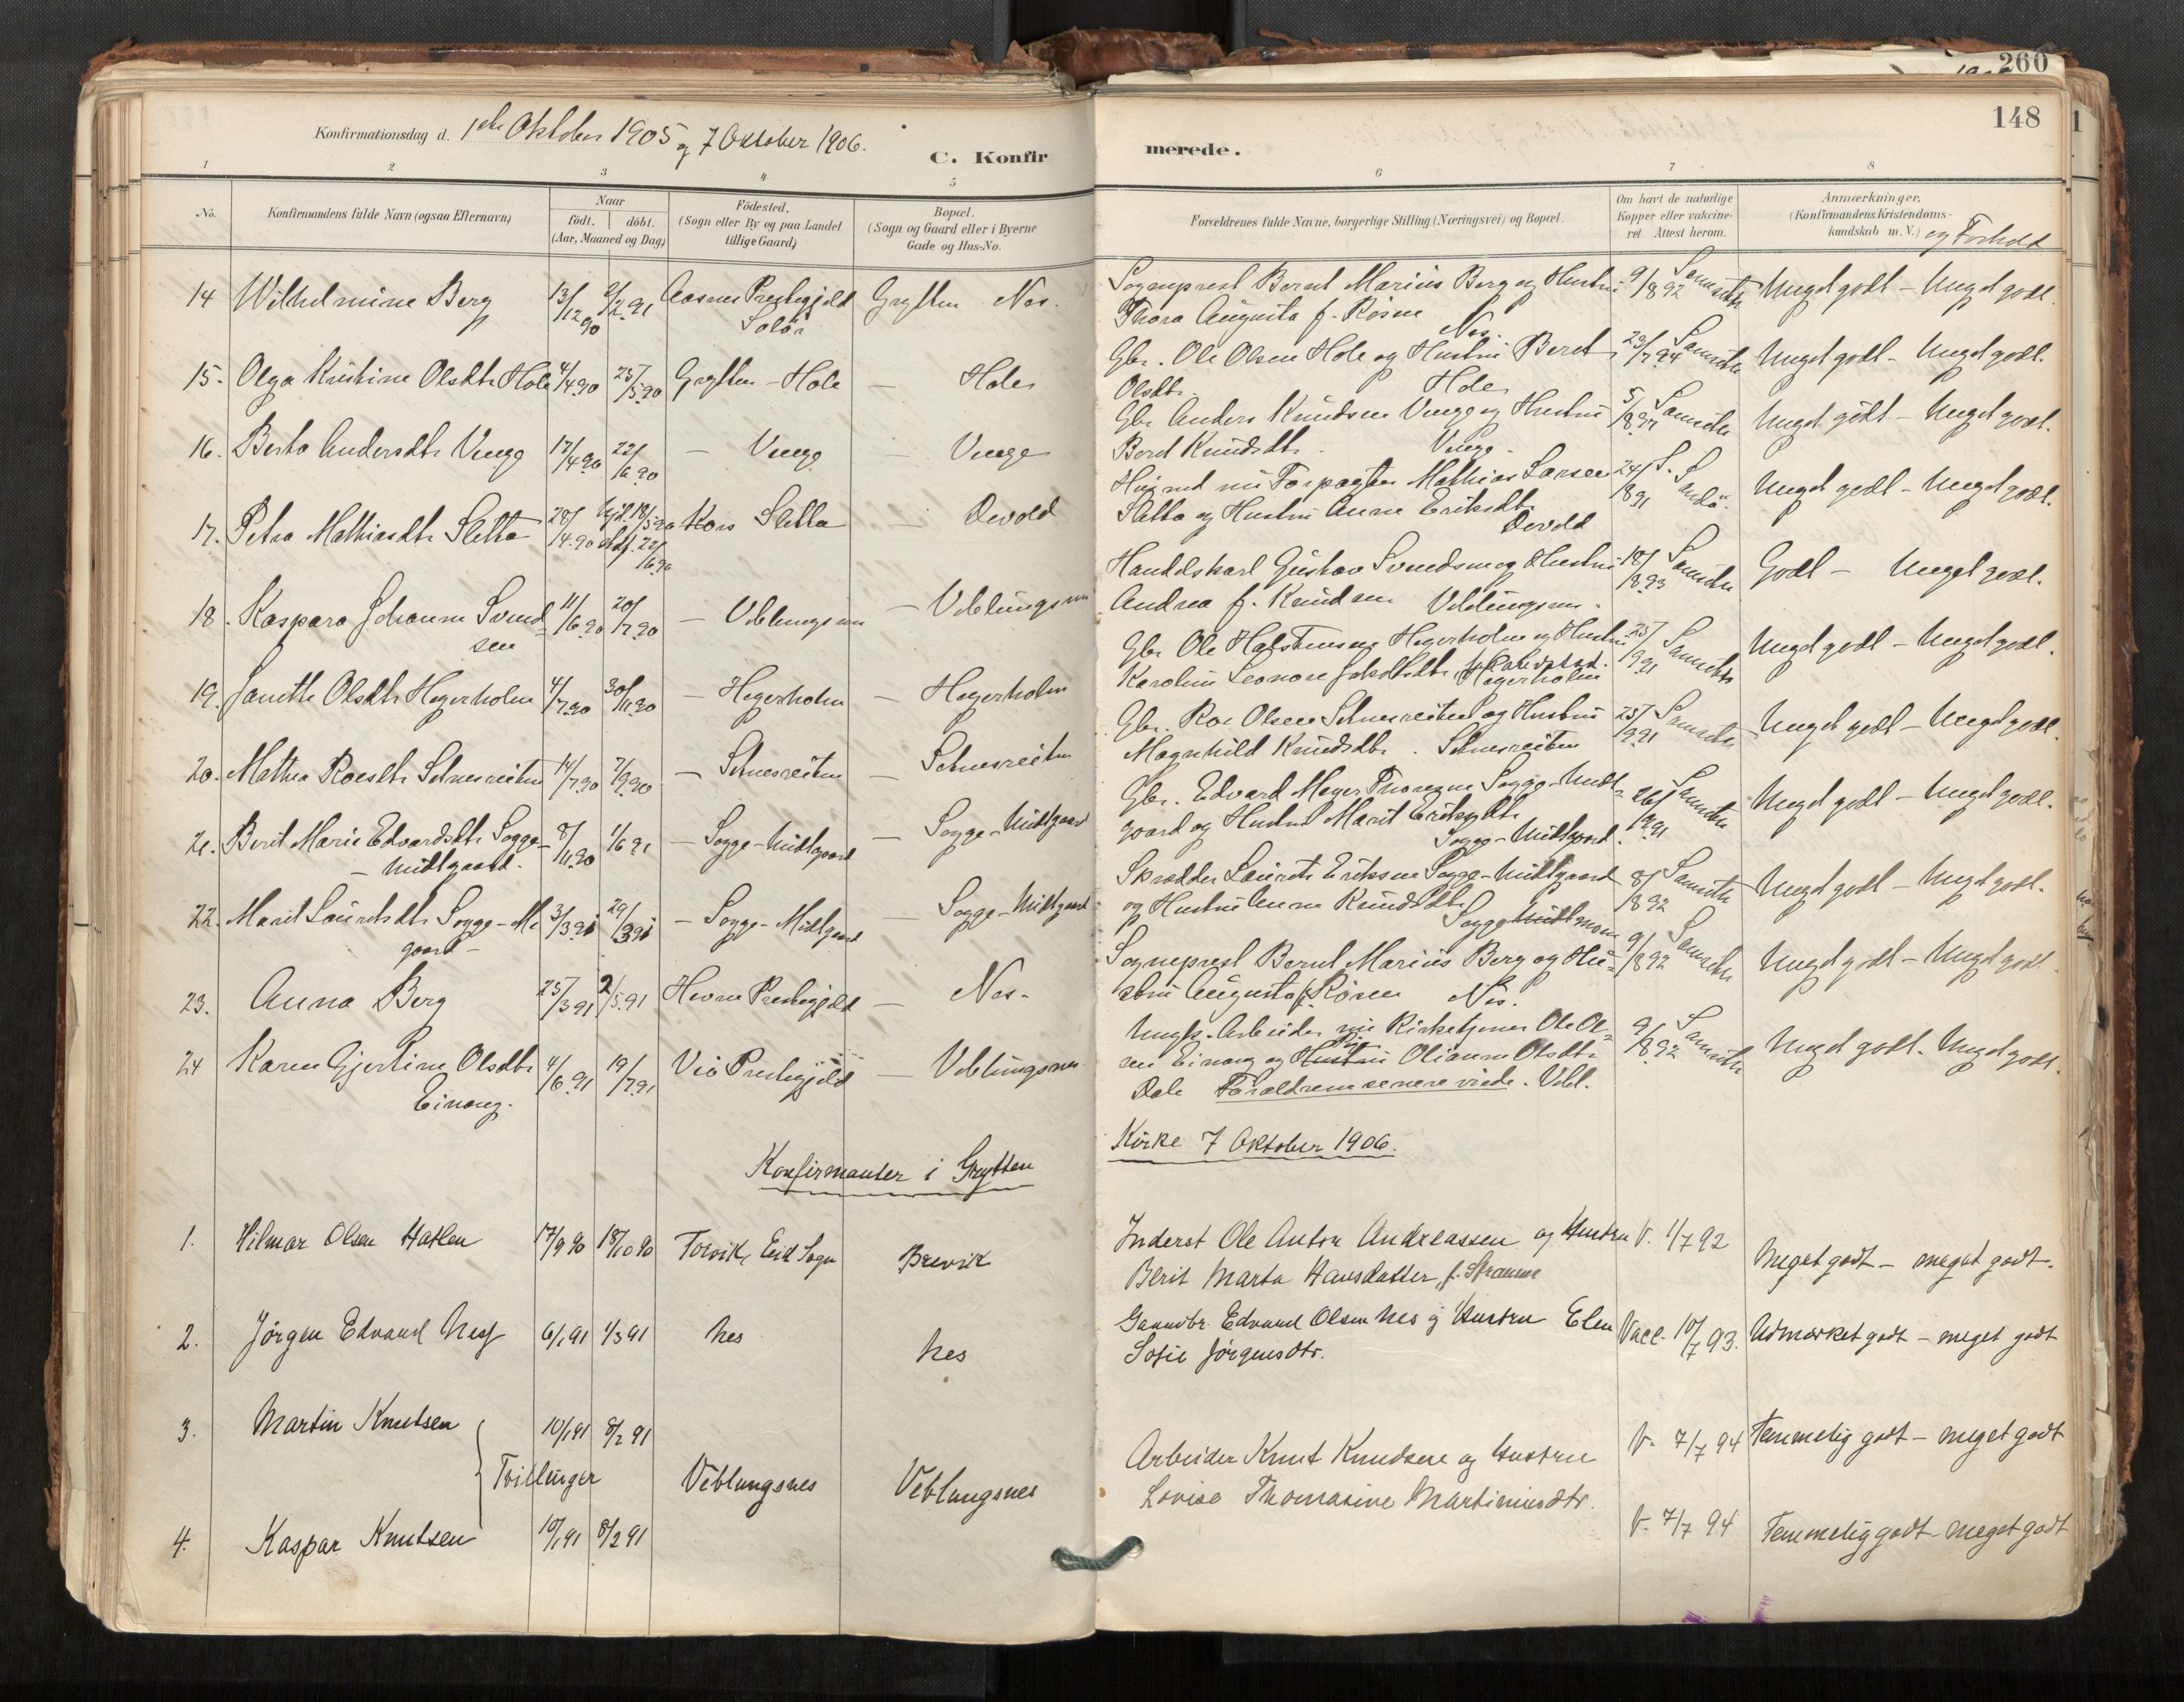 260
148
Konfirmationsdag d. 1ste Oktober 1905 og 7 Oktober 1906.
C. Konfirmerede.
1 2 3 4 5 6 7 8
No.
Konfirmandens fulde Navn (ogsaa Efternavn)
Naar
födt. döbt.
(Aar, Maaned og Dag)
Födested.
(Sogn eller By og paa Landet
tillige Gaard)
Bopæl.
(Sogn og Gaard eller i Byerne
Gade og Hus-No.
Forældrenes fulde Navne, borgerlige Stilling (Næringsvei) og Bopæl.
Om havt de naturlige
Kopper eller vakcine-
ret. Attest herom.
Anmærkninger,
(Konfirmandens Kristendoms-
kundskab m. V.) og Forhold
14 Wilhelmine Berg 13/12 90 2/2 91 Aasnes Prestegjeld Grytten Nes. Sogneprest Bernt Marius Berg og Hustru 9/8 92 Meget godt - Meget godt.
Solör Thora Augusta f. Rosen Nes.
15. Olga Kristine Olsdtr Hole 4/4 90 25/5 90 Grytten - Hole — Hole Gbr. Ole Olsen Hole og Hustru Beret 23/7 94 Meget godt - Meget godt.
Olsdtr. Hole
16. Berta Andersdtr Venge 17/4 90 22/6 90 — Venge — Venge Gbr Anders Knudsen Venge og Hustru 5/8 97 Meget godt - Meget godt.
Beret Knudsdtr. Venge.
17. Petra Mathiasdtr Sletta 28/4 90 18/5 90 22/6 90 Kors Sletta — Devold Husmd nu Forpagter Mathias Larsen 24/8 91 Meget godt - Meget godt.
Sletta og Hustru Anne Eriksdtr Devold
18. Kaspara Johanne Svend= 11/6 90 20/7 90 — Veblungsnes — Veblungsnes Handelskarl Gustav Svendsen og Hustru 18/8 93 Godt - Meget godt.
sen Andrea f. Knudsen Veblungsnes.
19. Janette Olsdtr Hegerholm 4/7 90 30/11 90 — Hegerholm — Hegerholm Gbr Ole Halstensen Hegerholm og Hustru 25/9 91 Meget godt - Meget godt.
Karoline Leonore Hegerholm
20. Mathea Roesdtr Setnesreiten 14/7 90 7/9 90 — Setnesreiten — Setnesreiten Gbr. Roe Olsen Setnesreiten og Hustru 25/9 91 Meget godt - Meget godt.
Magnhild Knudsdtr. Setnesreiten
21. Berit Marie Edvardsdtr Sogge- 8/11 90 1/6 91 — Sogge-Midtgaard — Sogge-Midtgaard Gbr. Edvard Meyer Thoresen Sogge-Midt= 26/9 91 Meget godt - Meget godt.
- Midtgaard. gaard og Hustru Marit Eriksdtr
Sogge-Midtgaard.
22. Marit Lauritsdtr Sogge-Mi 3/3 91 29/3 91 — Sogge-Midtgaard — Sogge-Midtgaard Skrædder Laurits Eriksen Sogge-Midtgaard 8/8 92 Meget godt - Meget godt.
gaard - og Hustru Anne Knudsdtr
23. Anna Berg 25/3 91 2/5 91 Hevne Prestegjeld — Nes. Sogneprest Bernt Marius Berg og Hu= 9/8 92 Meget godt - Meget godt
stru Augusta f. Rosen Nes.
24 Karen Gjertine Olsdtr 4/6 91 19/7 91 Prestegjeld — Veblungsnes. Ungk. Arbeider nu Kirketjener Ole Ol= 9/8 92 Meget godt. Meget godt.
Einang. sen Einang og Hustru Olianne Olsdtr
Dale Forældrene senere viede. Vebl.
Konfirmanter i Grytten Kirke 7 Oktober 1906.
1. Hilmar Olsen Hatlen 17/9 90 18/10 90 Torvik, Eid Sogn Brevik Inderst Ole Anton Andreassen og Hustru V. 1/7 92 Meget godt - meget godt.
Berit Marta Hansdatter
2. Jörgen Edvard Nes 6/1 91 1/3 91 Nes Nes Gaardbr. Edvard Olsen Nes og Hustru Elen Vacc. 10/7 93. Udmærket godt - meget godt
Sofie Jörgensdtr.
3. Martin Knutsen 10/1 91 8/2 91 V. 7/7 94 Temmelig godt - meget godt
Tvillinger Veblungsnes Veblungsnes Arbeider Knut Knudsen og Hustru
Lovise Thomasine Martinusdtr.
4. Kaspar Knutsen 10/1 91 8/2 91 V. 7/7 94 Temmelig godt - meget godt